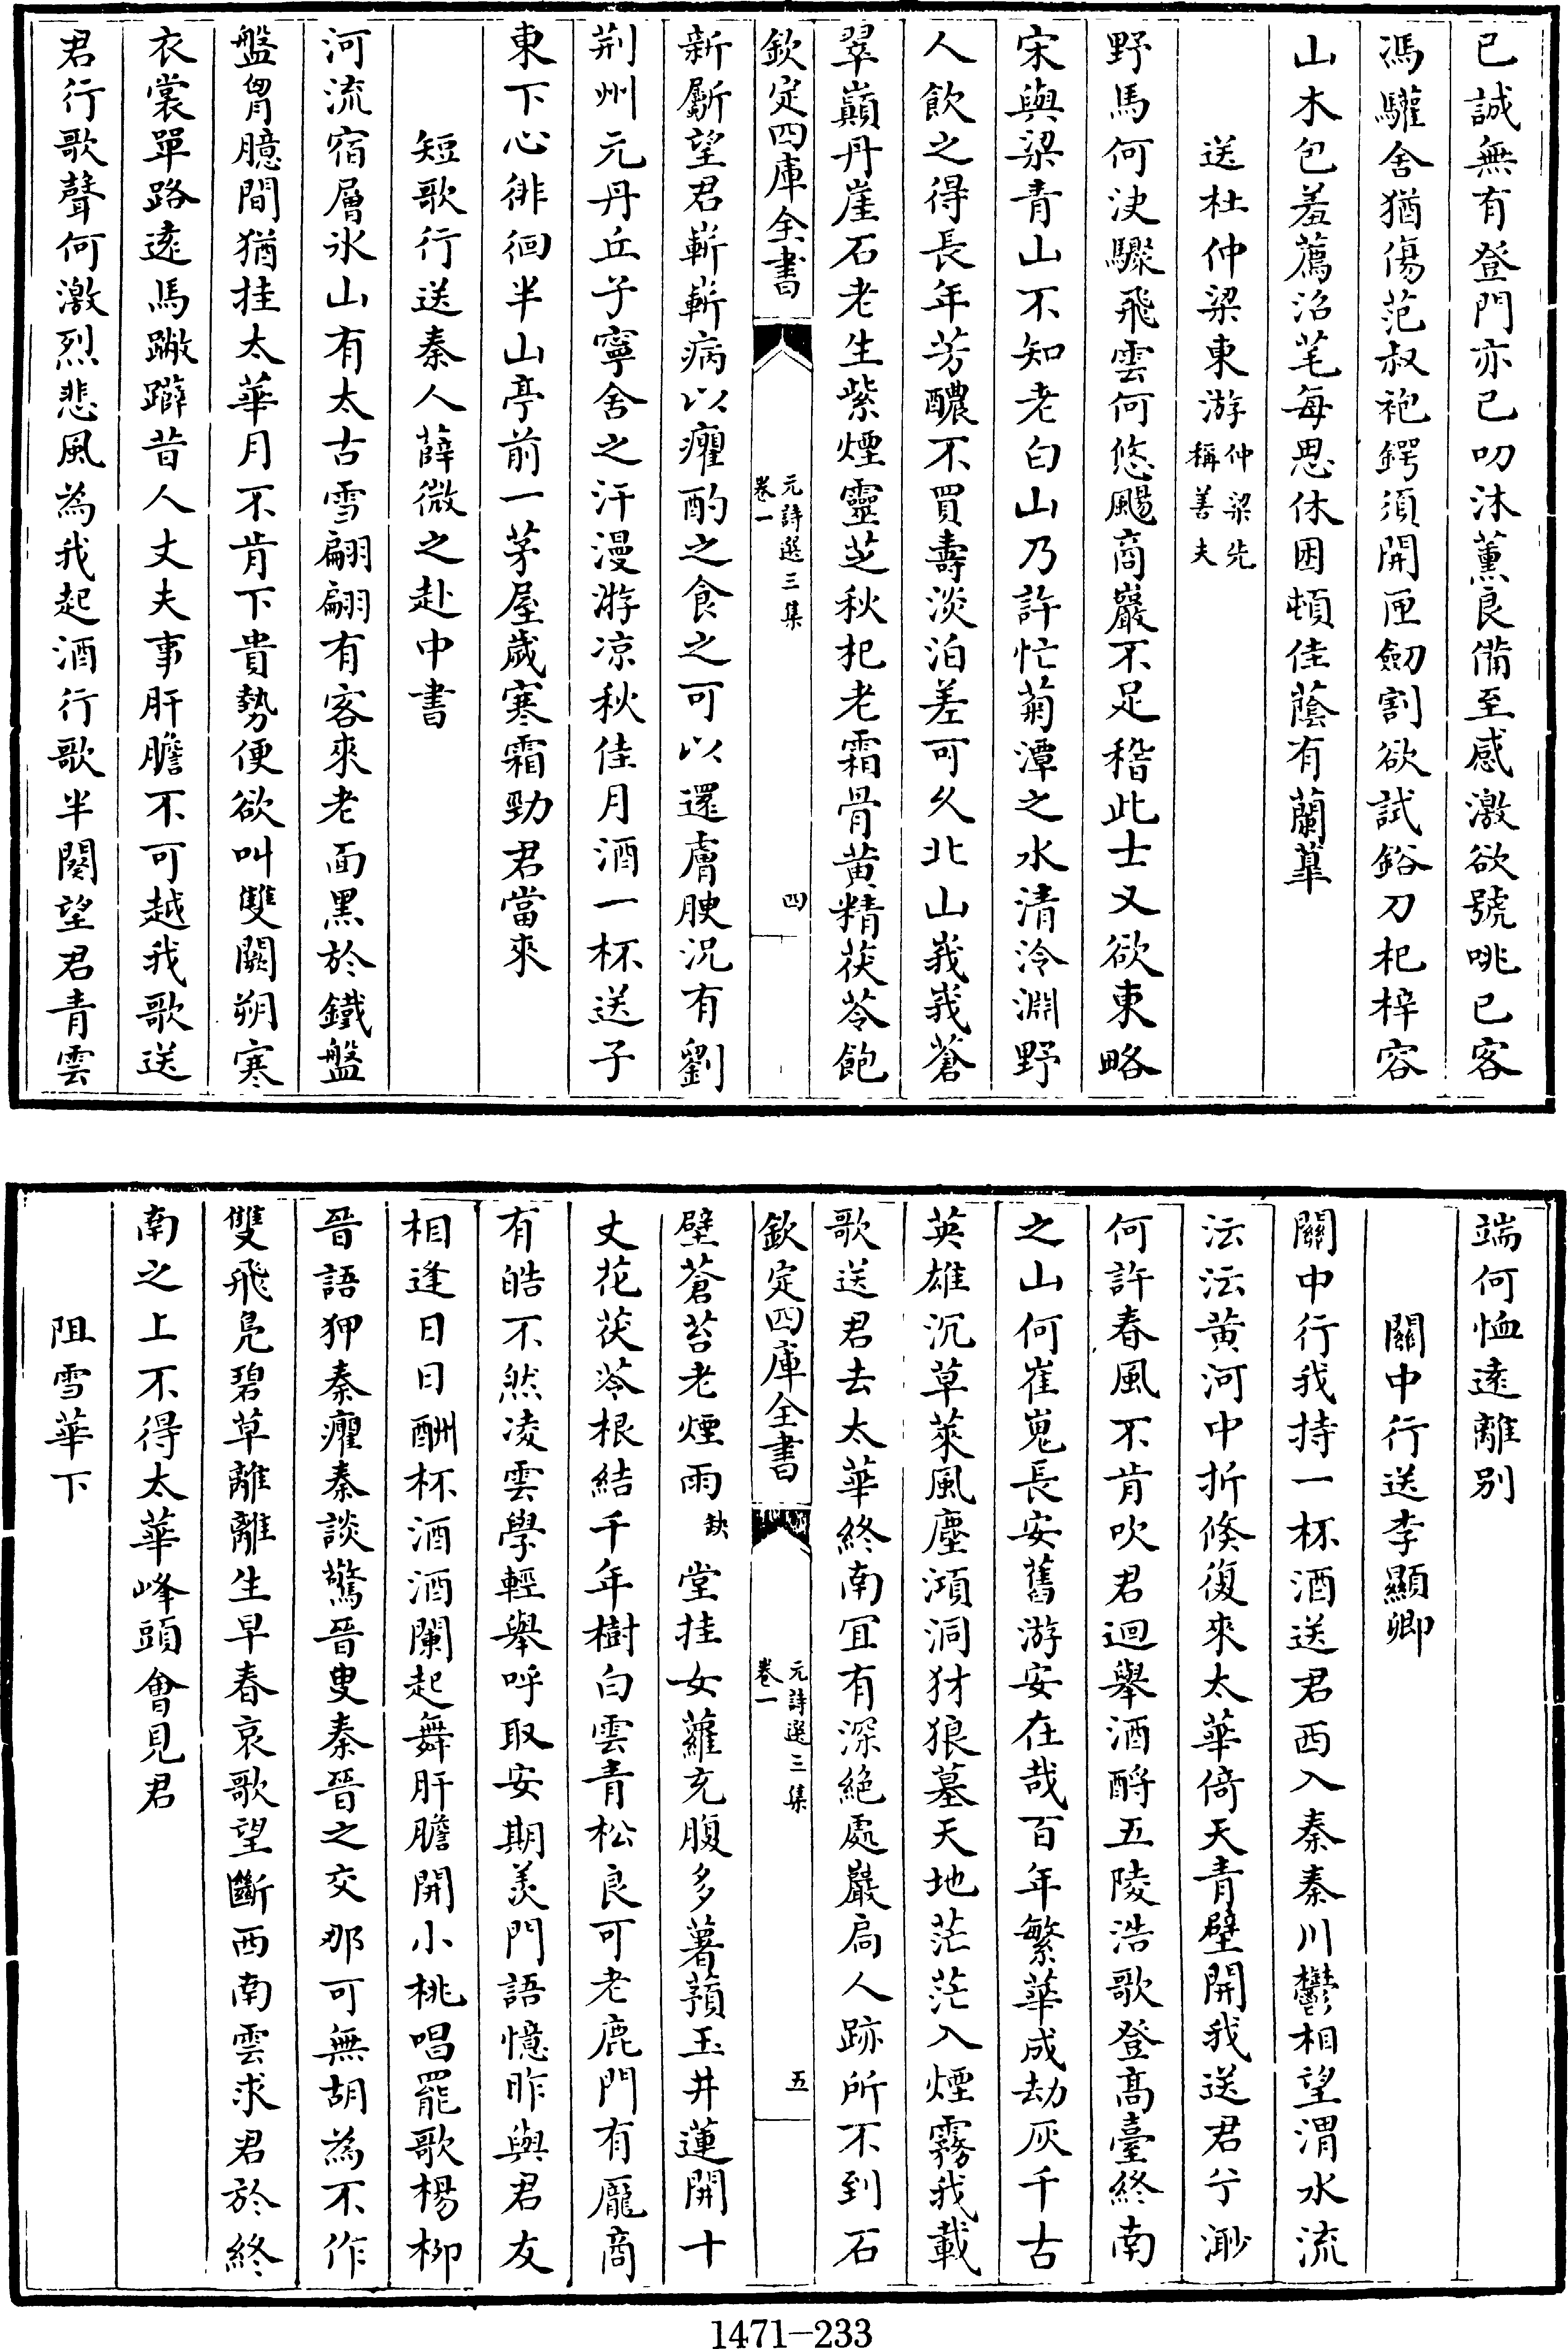 已誠無有登門亦已叨沐薰良備至感激欲號咷已客
馮驩舍猶傷范叔袍鍔須開匣劒割欲試鉛刀杞梓容
山木包羞薦沼芼每思休困頓佳蔭有蘭臯
送杜仲梁東游仲梁先稱善夫
野馬何決驟飛雲何悠颺商巖不足稽此士又欲東略
宋與梁青山不知老白山乃許忙菊潭之水清泠淵野
人飲之得長年芳醲不買壽淡泊差可久北山峩峩蒼
翠巔丹崖石老生紫煙靈芝秋杞老霜骨黄精茯苓飽
欽定四庫全書 元詩選三集 卷一 四
新斸望君嶄嶄病以癯酌之食之可以還膚腴況有劉
荆州元丹丘子寧舍之汗漫游凉秋佳月酒一杯送子
東下心徘徊半山亭前一茅屋歲寒霜勁君當來
短歌行送秦人薛微之赴中書
河流宿層氷山有太古雪翩翩有客來老面黑於鐵盤
盤胷臆間猶挂太華月不肯下貴勢便欲叫雙闕朔寒
衣裳單路遠馬蹩躃昔人丈夫事肝膽不可越我歌送
君行歌聲何激烈悲風為我起酒行歌半闋望君青雲
端何恤遠離别
關中行送李顯卿
關中行我持一杯酒送君西入秦秦川鬱相望渭水流
沄沄黄河中折倏復來太華倚天青壁開我送君兮渺
何許春風不肯吹君迴舉酒酹五陵浩歌登髙臺終南
之山何崔嵬長安舊游安在哉百年繁華成劫灰千古
英雄沉草萊風塵澒洞豺狼墓天地茫茫入煙霧我載
歌送君去太華終南宜有深絕處巖扃人跡所不到石
欽定四庫全書 元詩選三集 卷一 五
壁蒼苔老煙雨缺堂挂女蘿充腹多薯蕷玉井蓮開十
丈花茯苓根結千年樹白雲青松良可老鹿門有龐商
有皓不然凌雲學輕舉呼取安期羨門語憶昨與君友
相逢日日酬杯酒酒闌起舞肝膽開小桃唱罷歌楊柳
晉語狎秦癯秦談驚晉叟秦晉之交那可無胡為不作
雙飛凫碧草離離生早春哀歌望斷西南雲求君於終
南之上不得太華峰頭會見君
阻雪華下
1471-233